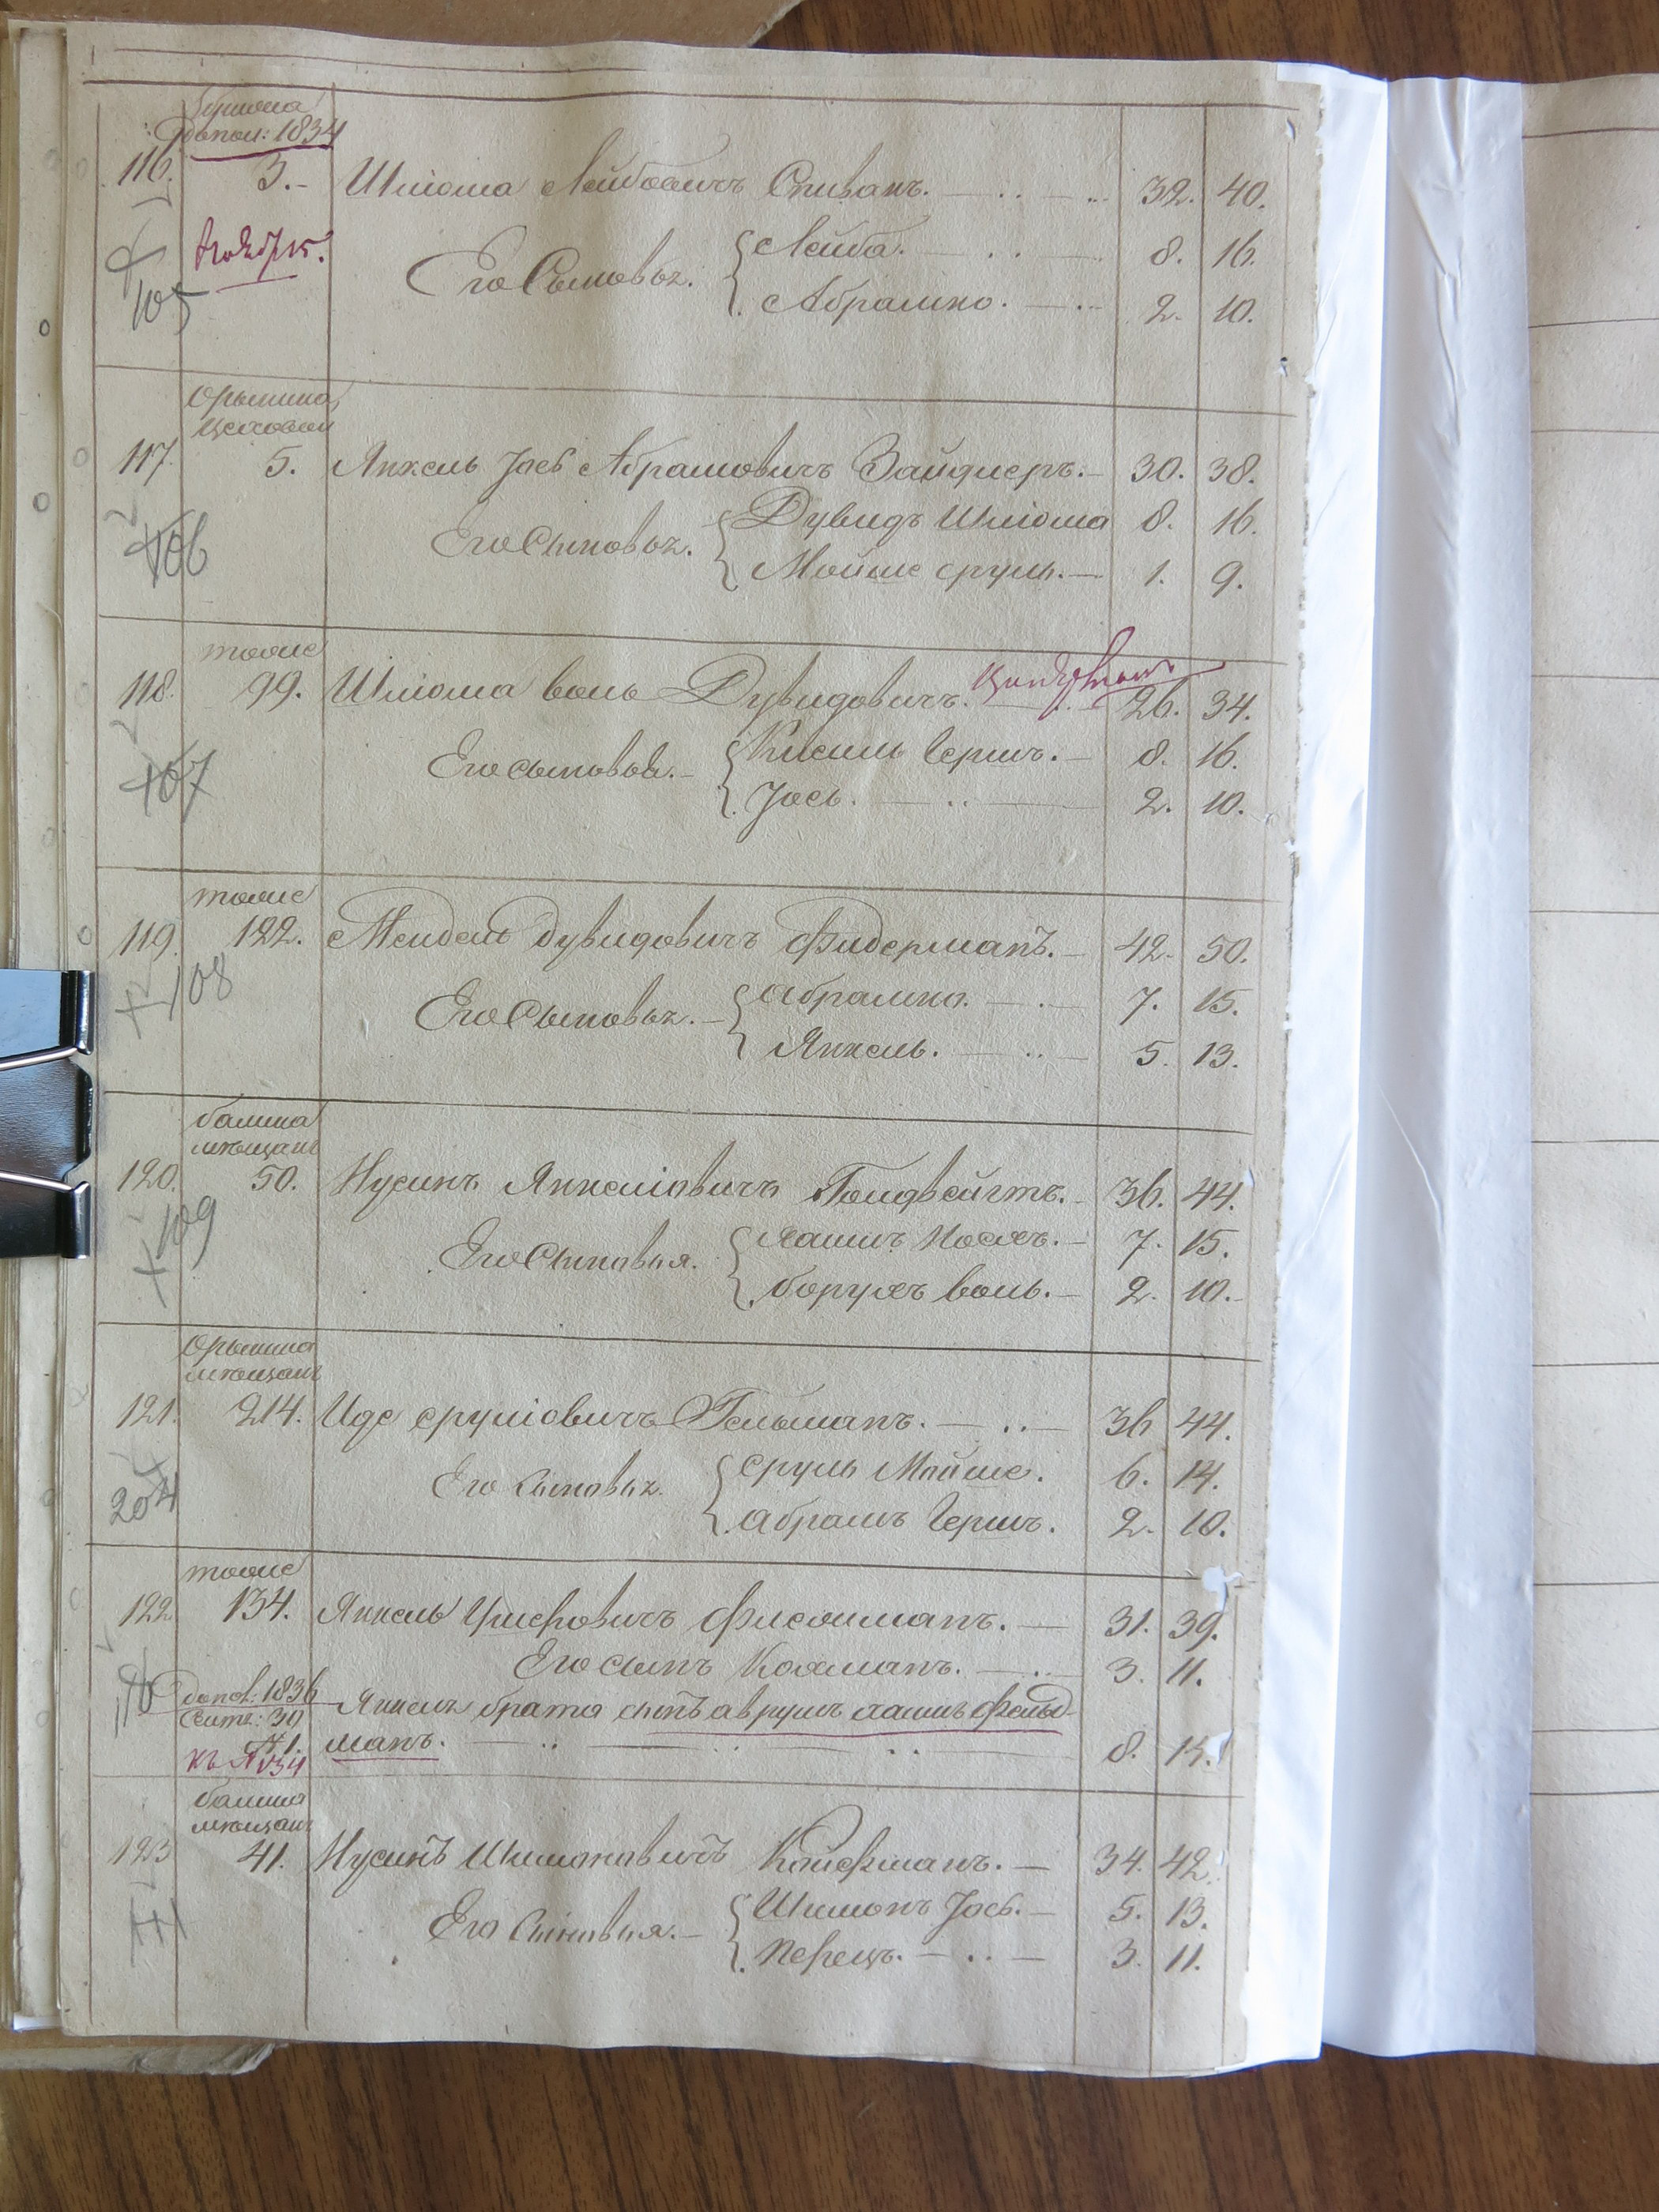 допол: 1834
116. 3. Шліома Лейбовичъ Спивакъ. 32. 40.
Его Сыновья. Лейба. 8. 16.
105 Абрамко. 2. 10.
Орынина
Цеховой
117. 5. Янкель Іосъ Абрамовичъ Зайднеръ. 30. 38.
Его Сыновья. Дувидъ Шліома 8. 16.
106 Мойше Сруль. 1. 9.
тоже
118. 99. Шліома Воль Дувидовичъ. 26. 34.
Его сыновья. Кисиль Гершъ. 8. 16.
107 Іось. 2. 10.
тоже
119. 122. Мендель Дувидовичъ Фидерманъ. 42. 50.
108
Его Сыновья. Абрамко. 7. 15.
Янкель. 5. 13.
балина
мѣщанъ
120. 50. Нусинъ Янкеліовичъ Голдвейгтъ. 36. 44.
109 Его Сыновья. Хаимъ Иосъ. 7. 15.
Борухъ Воль. 2. 10.
Орынина
мѣщанъ
121. 214. Иде Сруліовичъ Гельманъ. 36 44.
Его Сыновья. Сруль Мойше. 6. 14.
204 Абрамъ Гершъ. 2. 10.
тоже
122 134. Янкель Ушеровичъ 31. 39.
Его сынъ Калманъ. 3. 11.
110 допол: 1836 Янкеля брата сынъ Аврумъ Хаимъ Фельд-
Сент: 30
№ 1. манъ. 8. 15.
къ № 134
балина
мѣщанъ
123 41. Нусинъ Шимоновичъ Койфманъ. 34. 42.
Его Сыновья. Шимонъ Іось. 5. 13.
111 Перецъ. 3. 11.